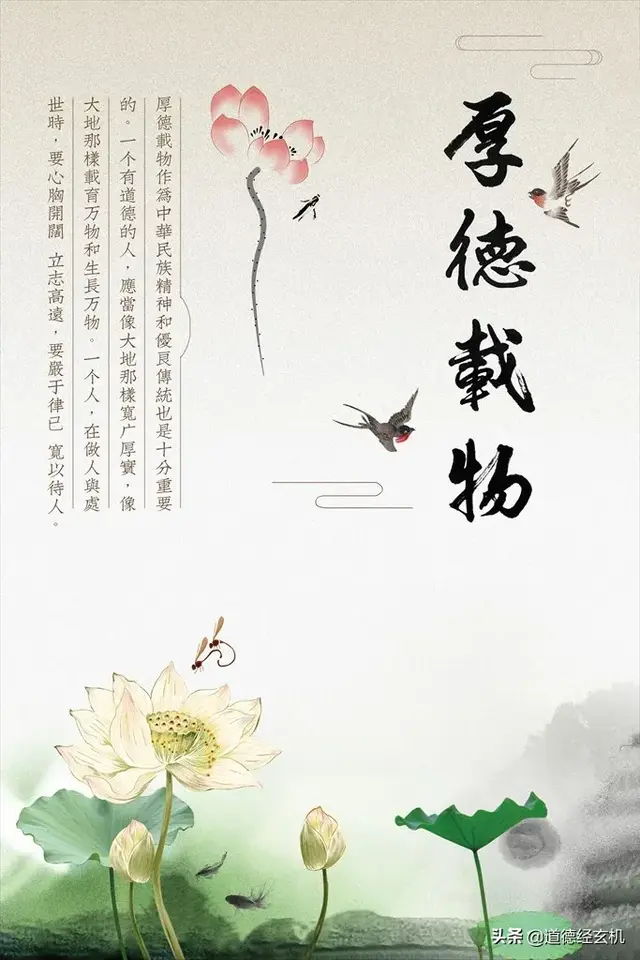 厚德載物
厚德載物作為中華民族精神和優良傳統也是十分重要
的。一个有道德的人，應當像大地那樣寬广厚實，像
大地那樣載育万物和生長万物。一个人，在做人與處
世時，要心胸開闊 立志高遠，要嚴于律已 寬以待人。
头条 @道德经玄机